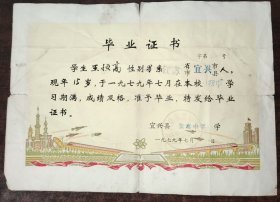 毕业证书
字第 号
学生 性别 系 省 宜兴 市县人，
现年15岁，于一九七九年七月在本校 学
习期满，成绩及格，准予毕业，特发给毕业
证书。
宜兴县 中学
一九七九年七月 日